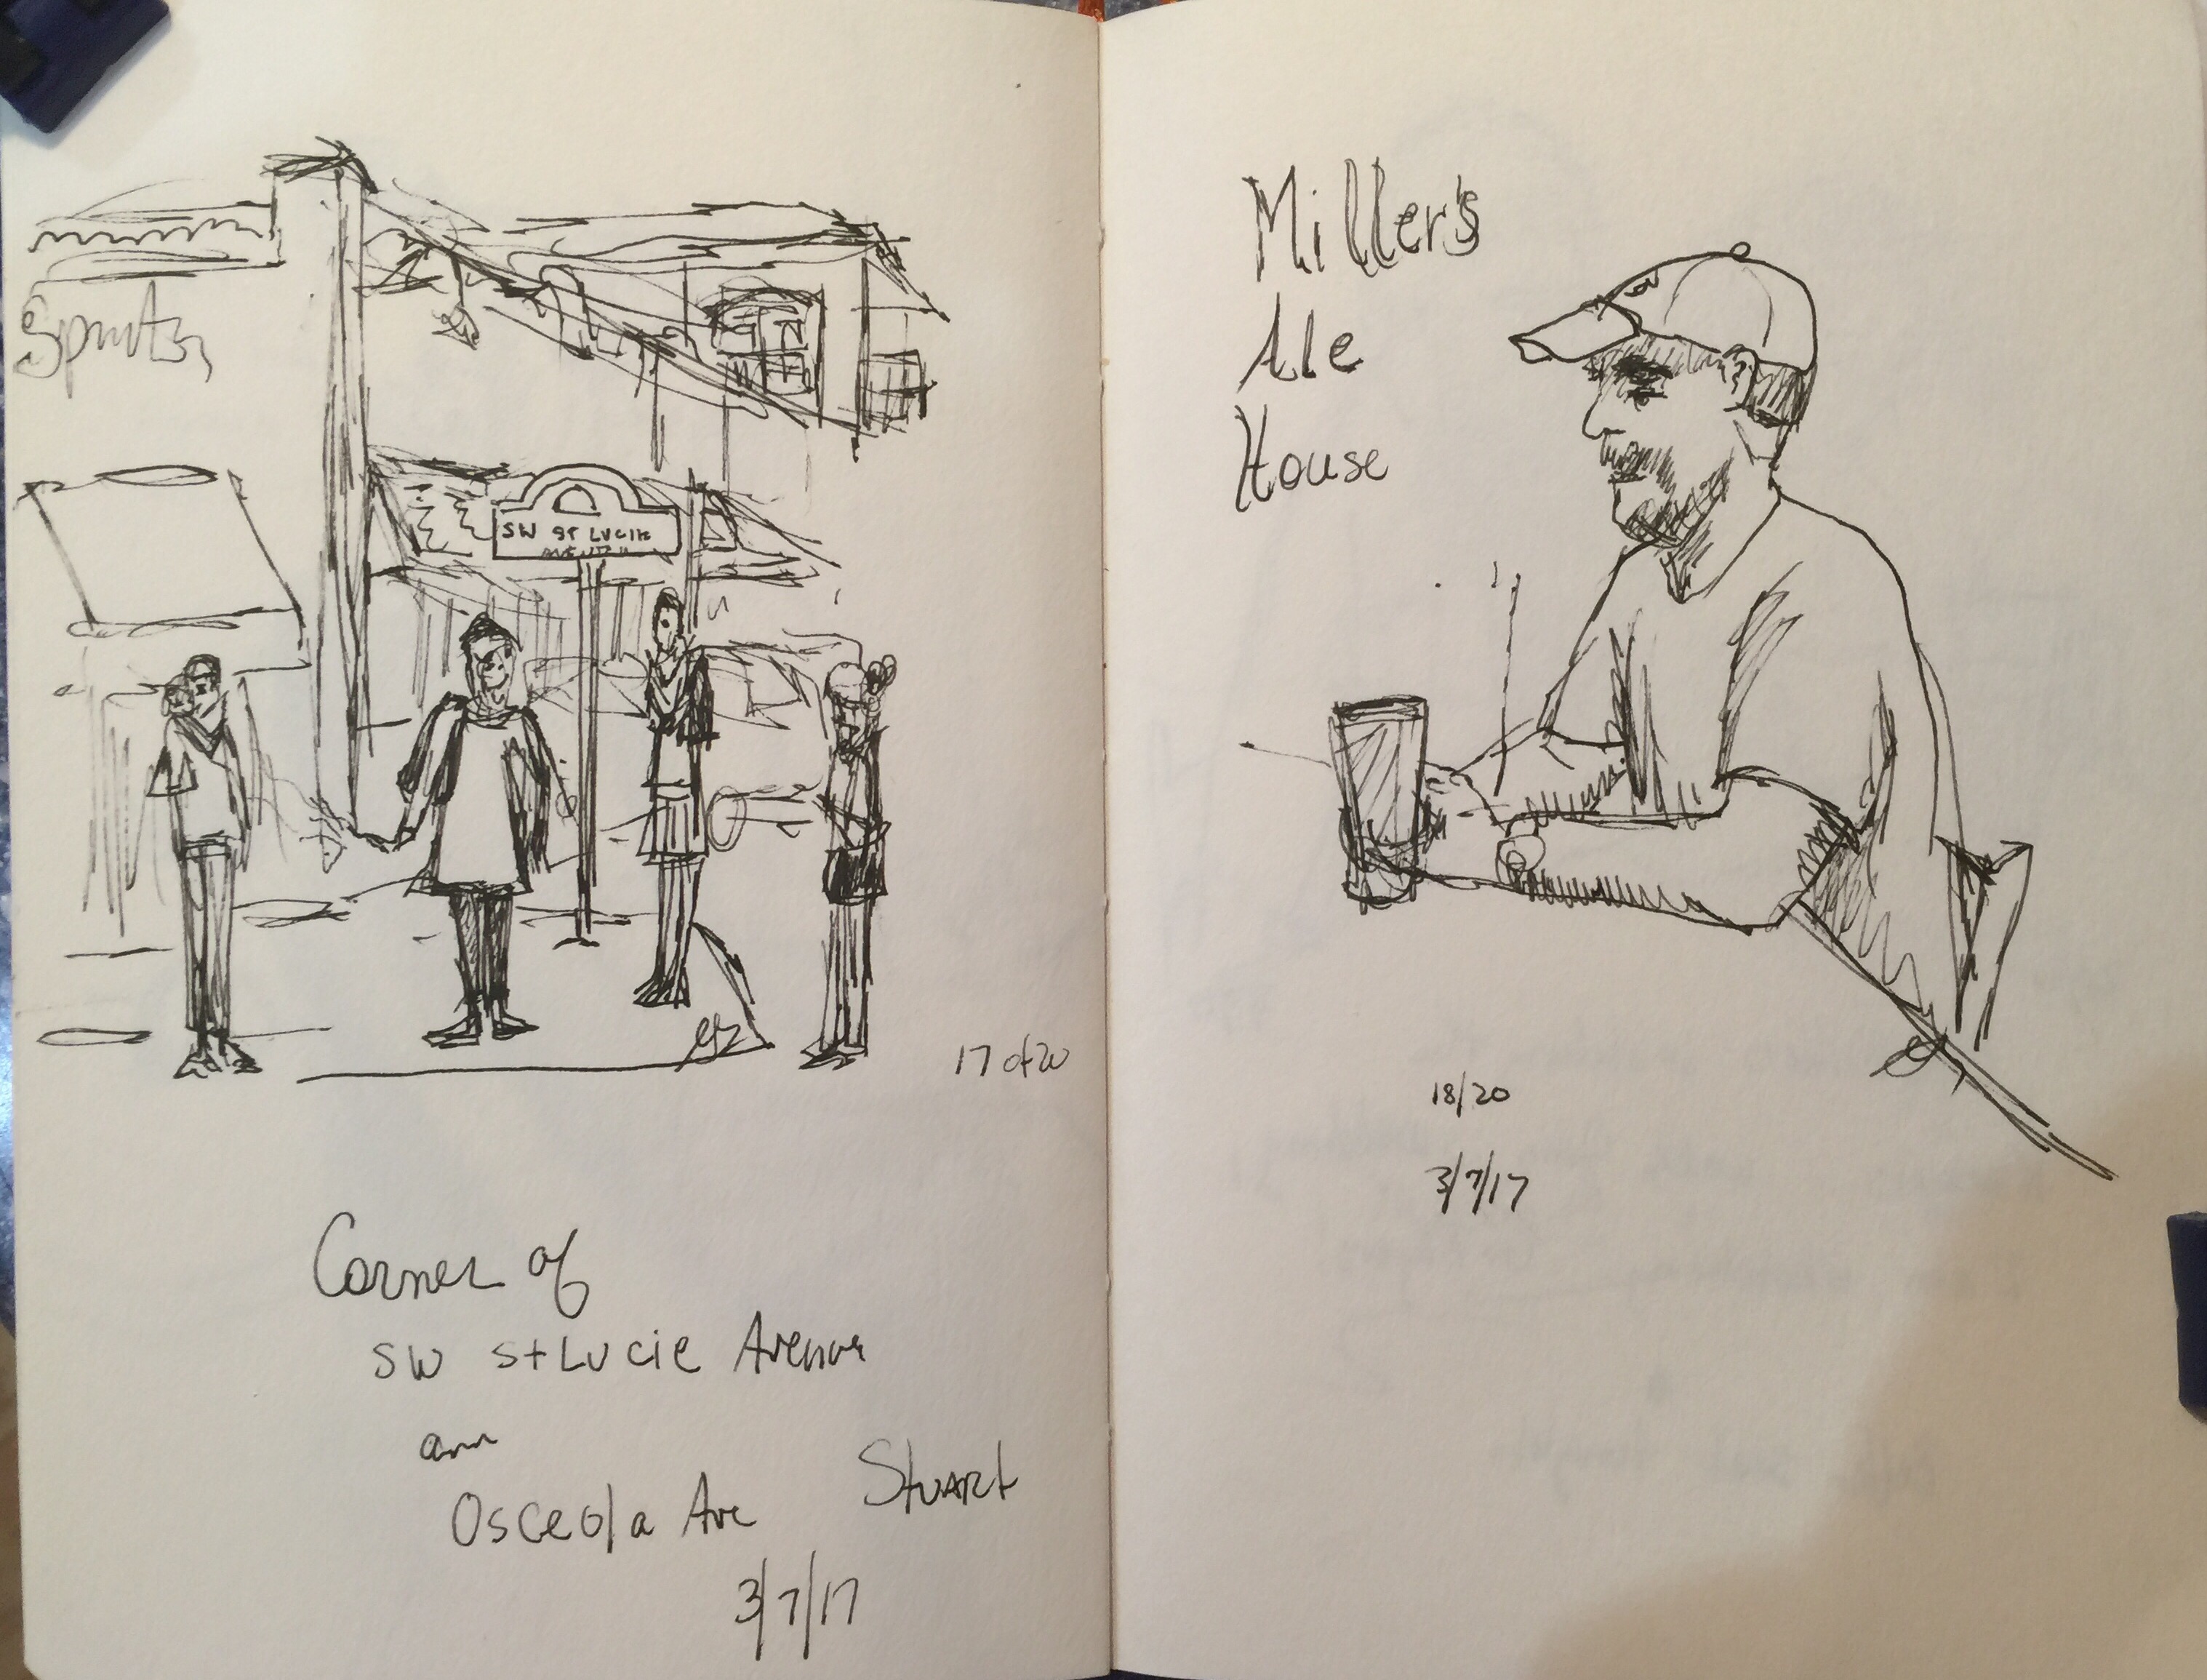 SW St LUCIE
AVENUE
17 of 20
Corner of
SW St Lucie Avenue
and
Osceola Ave
Stuart
3/7/17
Miller's
Ale
House
18/20
3/7/17